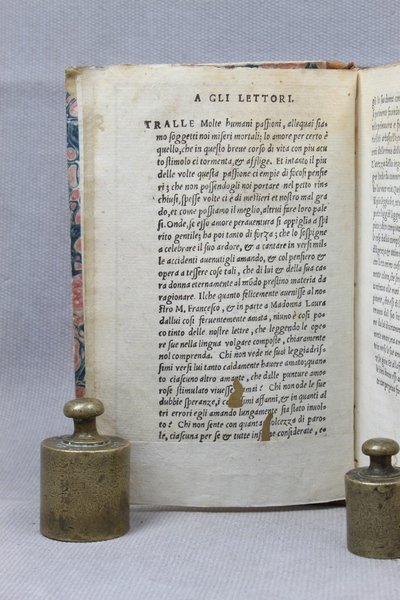 A GLI LETTORI.
TRALLE Molte humani passioni, allequai sia-
mo soggetti noi miseri mortali; lo amore per certo è
quello, che in questo breue corso di vita con piu acu
to stimolo ci tormenta, & afflige. Et intanto il piu
delle volte questa passione ci empie di focosi pensie
ri; che non possendogli noi portare nel petto rin-
chiusi, spesse volte ci è di mestieri et nostro mal gra
do, et come possiamo il meglio, altrui fare loro pale
si. Onde, se esso amore perauentura si appiglia a spi
rito gentile; ha poi tanto di forza; che lo sospigne
a celebrare il suo ardore, & a cantare in versi mil-
le accidenti auenutigli amando, & col pensiero &
opera a tessere cose tali, che di lui & della sua ca-
ra donna eternamente al mõdo prestino materia da
ragionare. Ilche quanto felicemente auenisse al no-
stro M, Francesco, & in parte a Madonna Laura
dallui cosi feruentemente amata, niuno è cosi poco
tinto delle nostre lettre, che leggendo le ope-
re sue nella lingua volgare composte, chiaramente
nol comprenda. Chi non vede ne suoi leggiadris-
simi versi lui tanto caldamente hauere amato; quan
to ciascuno altro amante, che dalle punture amo-
rose stimolato viuesse Chi non ode le sue
dubbie speranze, i affanni, & in quanti al
tri errori egli amando lungamente sia stato inuol-
to? Chi non sente con quanta dolcezza di paro-
le, ciascuna per se & tutte insieme considerate, e-